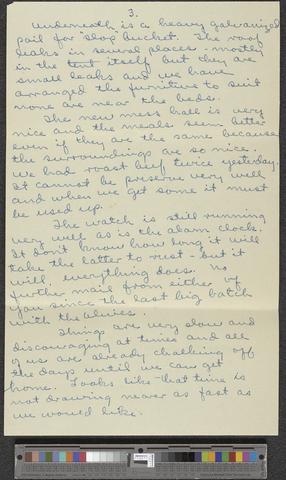 3.
Underneath is a heavy galvanized
pail for "slop bucket." The roof
leaks in several places - mostly
in the tent itself but they are
small leaks and we have
arranged the furniture to suit
none are near the beds.
The new mess hall is very
nice and the meals seem better
even if they are the same because
the surroundings are so nice.
We had roast beef twice yesterday.
It cannot be preserve very well
and when we get some it must
be used up.
The watch is still running
very well as is the alarm clock.
It don't know how long it will
take the latter to rust - but it
will, everything does. No
further mail from either of
you since the last big batch
with the
Things are very slow and
discouraging at times and all
of us are already chalking off
the days until we can get
home. Looks like that time is
not drawing near as fast as
we would like.